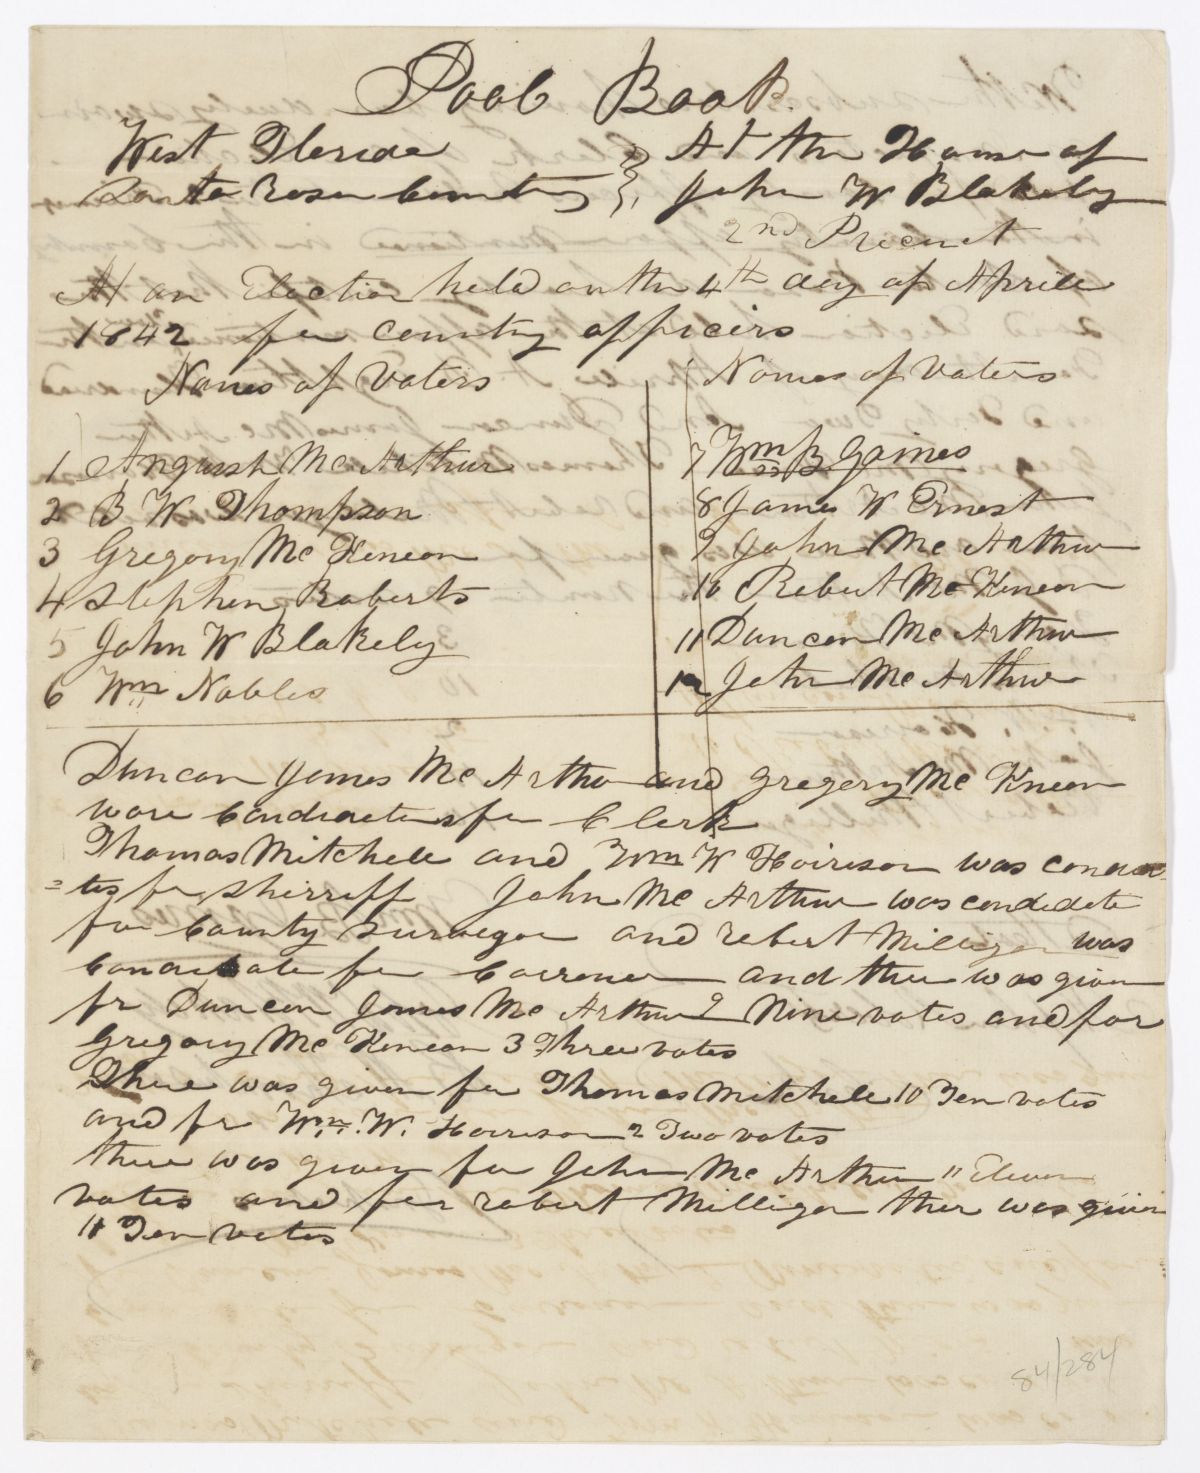 Pool Book
West Floride } At the House of
Santa Rosa County } John W Blakely
2nd Precinct
At an Election held on the 4th day of Aprile
1842 for county officirs
Names of Voters
Names of Voters
1 Angush Mc Arthur
2 B W Thompson
3 Gregory Mc Keneon
4 Stephen Roberts
5 John W Blakely
6 Wm Nobles
7 Wm B Gaines
8 James W Ernest
9 John Mc Arthur
10 Robert Mc Keneon
11 Duncan Mc Arthur
12 John Mc Arthur
Duncan James Mc Arthur and Gregery Mc Kneon
ware Candidates for Clerk
Thomas Mitchele and Wm W Hairison was condida
=tes for Sherriff John Mc Arthur was condidate
for County Surveyor and rebert Milligan was
Candidate for Corroner and there was given
for Duncan James Mc Arthur 9 Nine votes and for
Gregory Mc Keneon 3 Three votes
There was given for Thomas Mitchele 10 Ten votes
and for Wm. W. Hairison 2 Two votes
there was given for John Mc Arthur 11 Eleven
votes and for robert Milligan ther was given
11 Ten votes
84/284